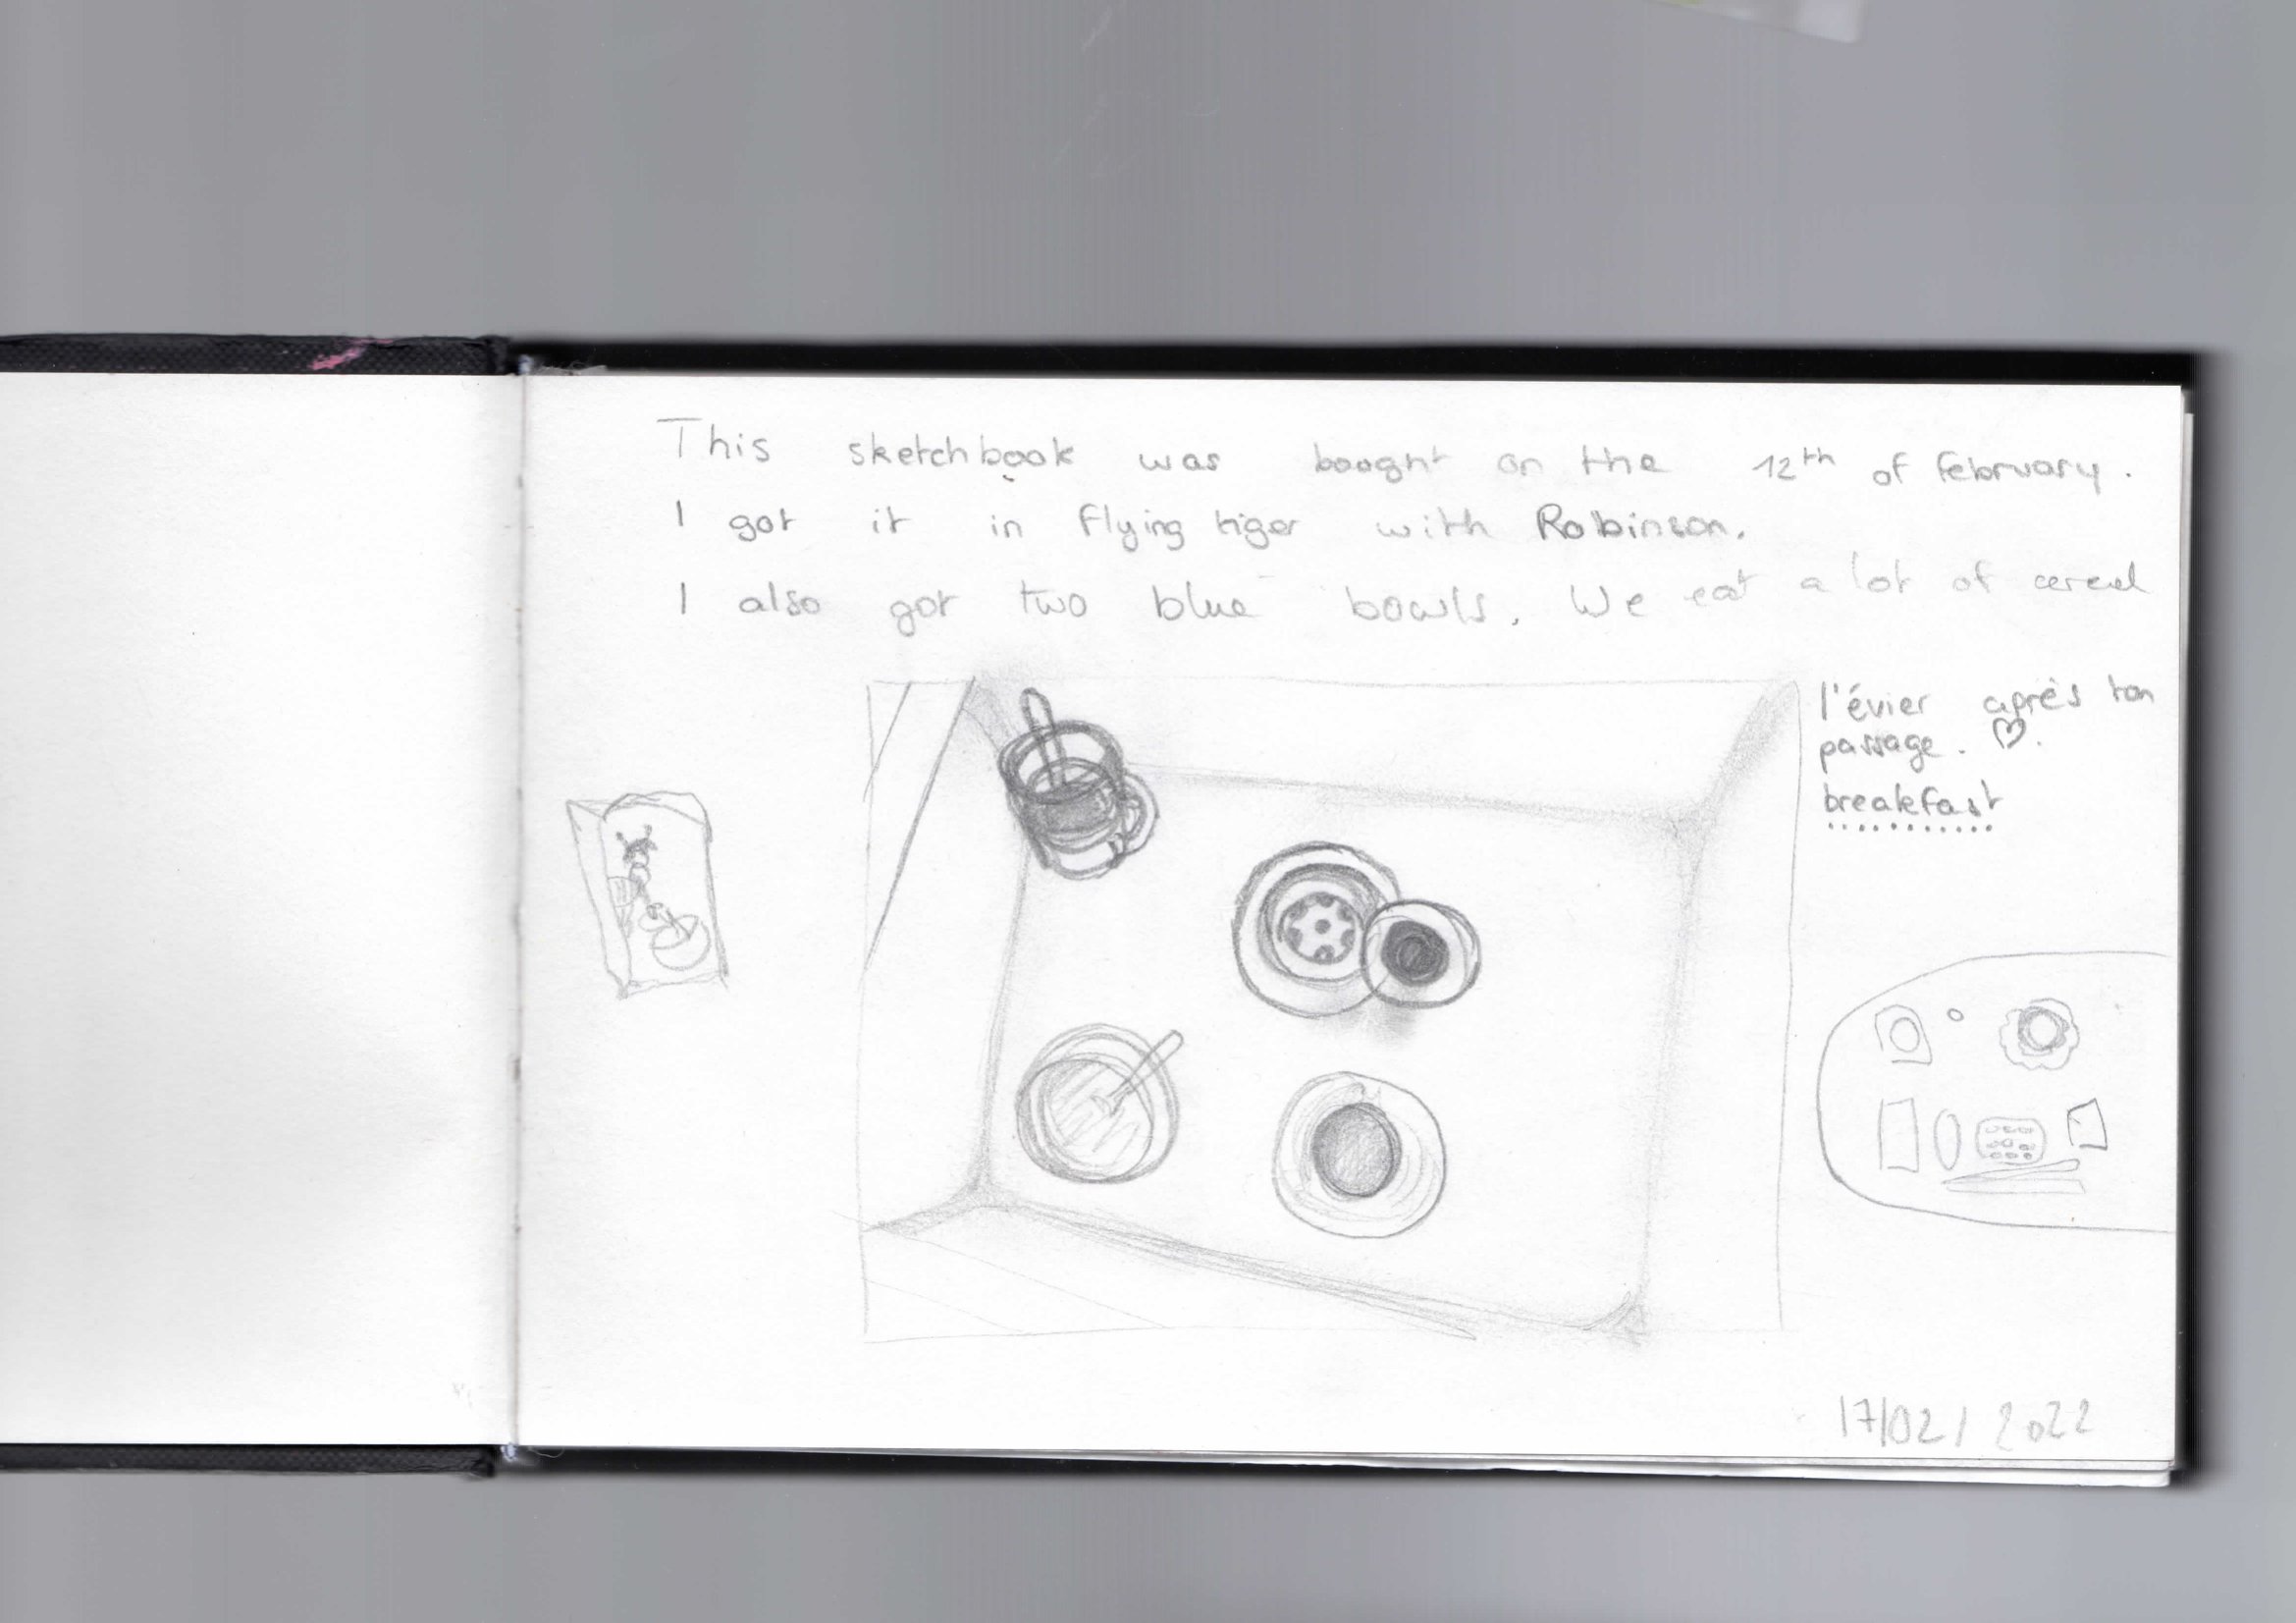 This sketchbook was bought on the 12th of february.
I got it in flying tiger with Robinson.
I also got two blue bowls. We eat a lot of cereal
l'évier après ton
passage. ♡.
breakfast
17/02/2022